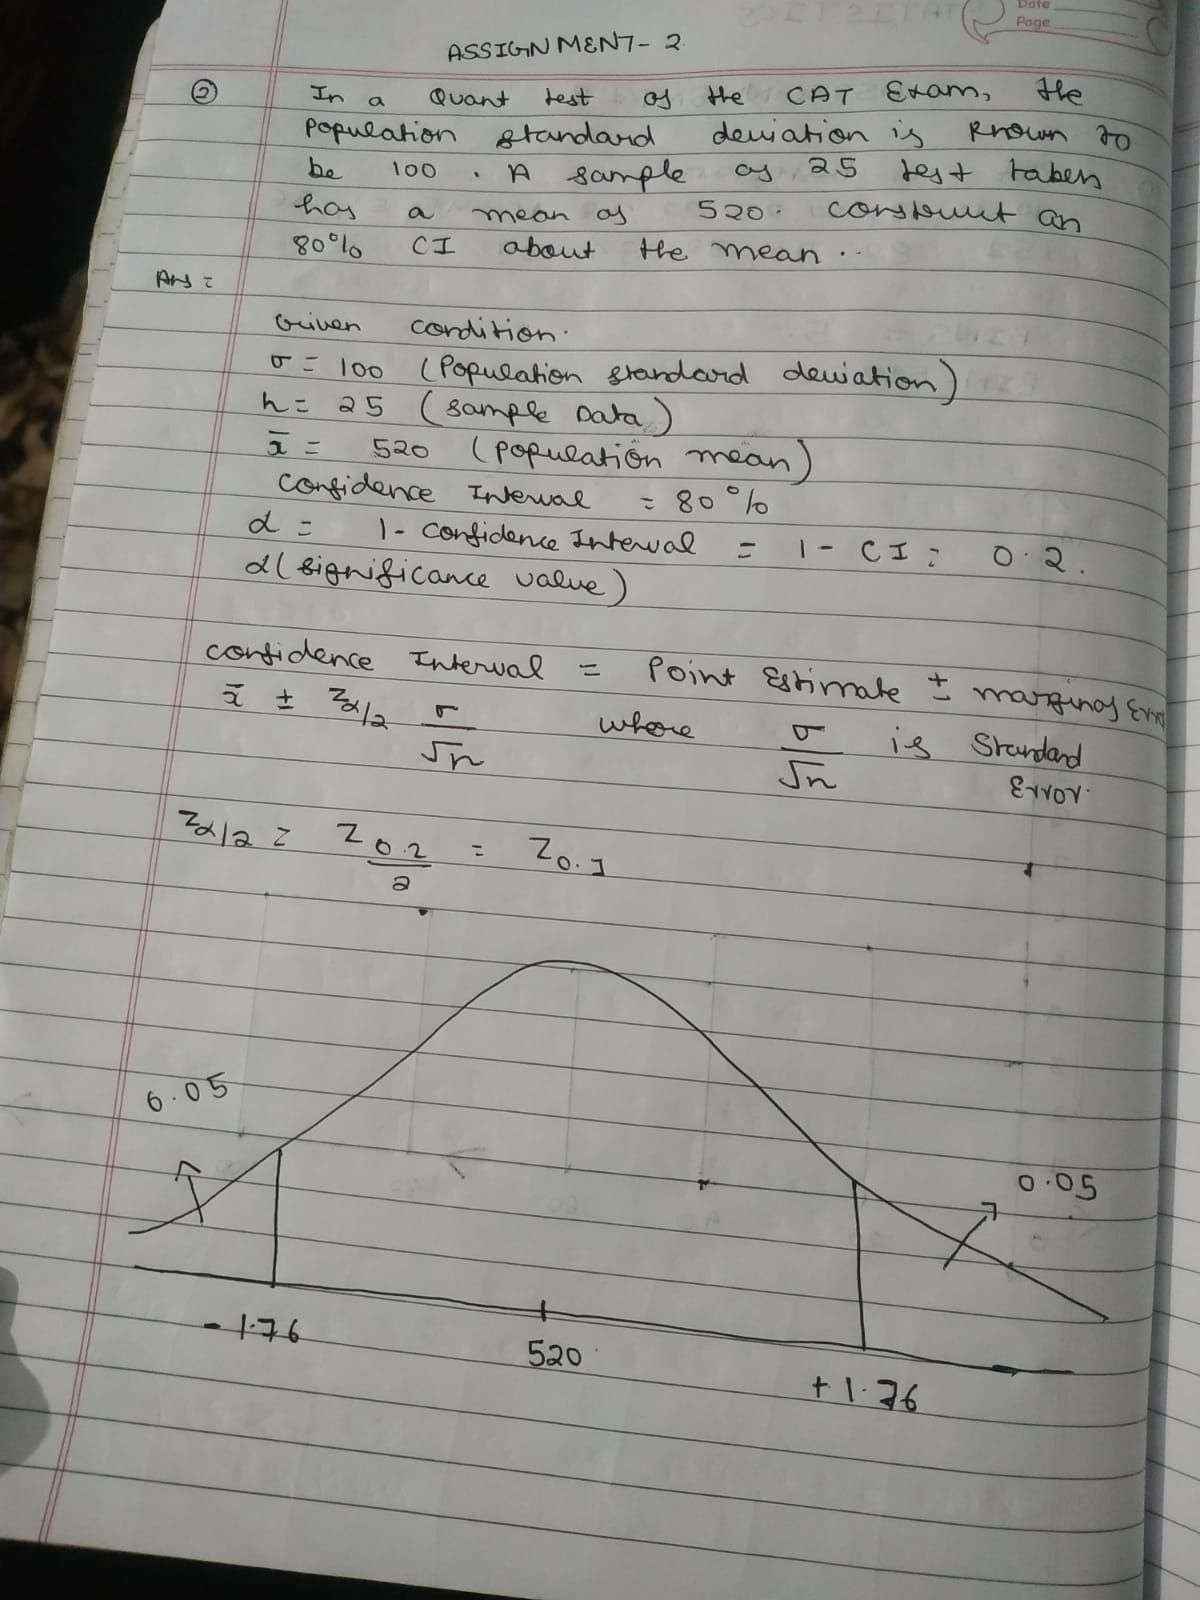 Date
Page
ASSIGNMENT - 2
② In a Quant test of the CAT Exam, the
population standard deviation is known to
be 100 . A sample of 25 test taken
has a mean of 520. construct an
80% CI about the mean ..
Ans =
Given condition.
σ = 100 (Population standard deviation)
n = 25 (sample Data)
x̄ = 520 (population mean)
confidence Interval = 80%
α = 1 - confidence Interval = 1 - CI = 0.2.
α (significance value)
confidence Interval = Point Estimate ± margin of Error
x̄ ± Zα/2 σ/√n where σ/√n is Standard
Error.
Zα/2 = Z0.2/2 = Z0.1
0.05
0.05
- 1.76
520
+ 1.76